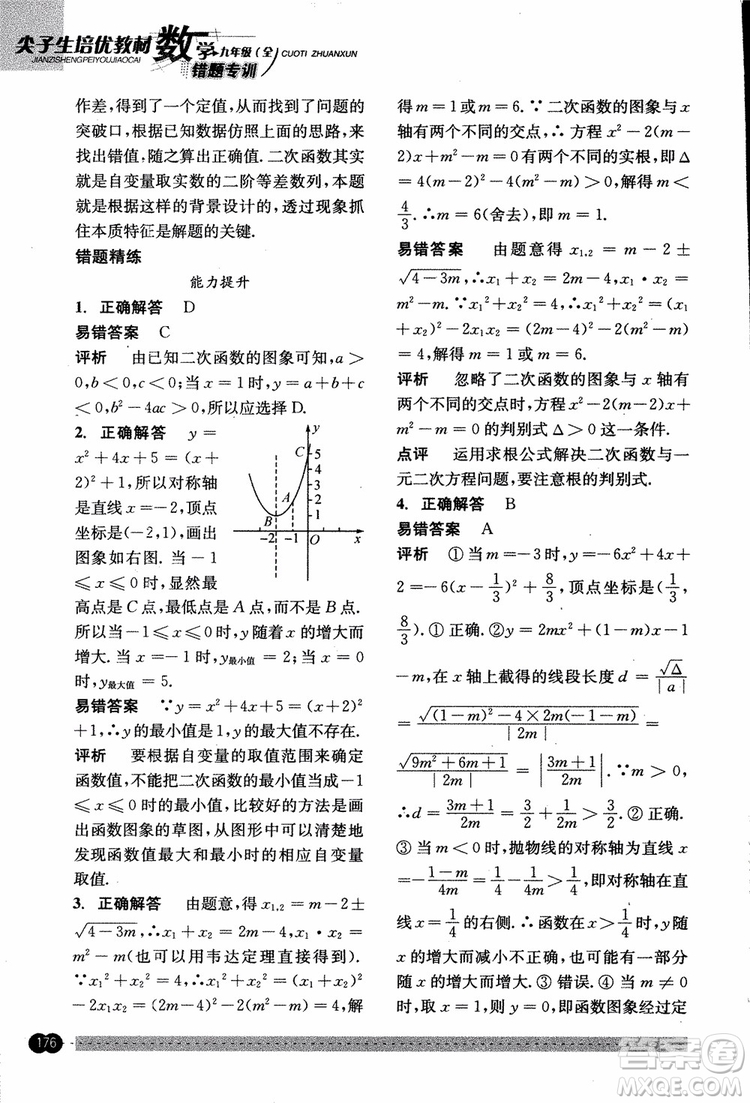 尖子生培优教材 数学·九年级(全) CUOTI ZHUANXUN
JIANZISHENGPEIYOUJIAOCAI 错题专训
作差,得到了一个定值,从而找到了问题的
突破口,根据已知数据仿照上面的思路,来
找出错值,随之算出正确值.二次函数其实
就是自变量取实数的二阶等差数列,本题
就是根据这样的背景设计的,透过现象抓
住本质特征是解题的关键.
错题精练
能力提升
1. 正确解答 D
易错答案 C
评析 由已知二次函数的图象可知,a>
0,b<0,c<0.当x=1时,y=a+b+c
<0,b²-4ac>0,所以应选择D.
2. 正确解答 y=
x²+4x+5=(x+
2)²+1,所以对称轴
是直线x=-2,顶点
坐标是(-2,1),画出
图象如右图.当-1
≤x≤0时,显然最
y
C
5
4
3
2
1
A
B
-2 -1 O x
高点是C点,最低点是A点.
所以当-1≤x≤0时,y随着x的增大而
增大.当x=-1时,y最小值=2;当x=0
时,y最大值=5.
易错答案 ∵y=x²+4x+5=(x+2)²
+1,∴y的最小值是1,y的最大值不存在.
评析 要根据自变量的取值范围来确定
函数值,不能把二次函数的最小值当成-1
≤x≤0时的最小值,比较好的方法是画
出函数图象的草图,从图形中可以清楚地
发现函数值最大和最小时的相应自变量
取值.
3. 正确解答 由题意,得x₁,₂=m-2±
√(4-3m),∴x₁+x₂=2m-4,x₁·x₂=
m²-m(此步也可以用韦达定理直接得到).
∵x₁²+x₂²=4,∴x₁²+x₂²=(x₁+x₂)²
-2x₁x₂=(2m-4)²-2(m²-m)=4,解
得m=1或m=6.∵二次函数的图象与x
轴有两个不同的交点,∴方程x²-2(m-
2)x+m²-m=0有两个不同的实根,即Δ
=4(m-2)²-4(m²-m)>0,解得m<
4/3.∴m=6(舍去),即m=1.
易错答案 由题意得x₁,₂=m-2±
√(4-3m),∴x₁+x₂=2m-4,x₁·x₂=
m²-m.∵x₁²+x₂²=4,∴x₁²+x₂²=(x₁
+x₂)²-2x₁x₂=(2m-4)²-2(m²-m)
=4,解得m=1或m=6.
评析 忽略了二次函数的图象与x轴有
两个不同的交点时,方程x²-2(m-2)x+
m²-m=0的判别式Δ>0这一条件.
点评 运用求根公式解决二次函数与一
元二次方程问题,要注意根的判别式.
4. 正确解答 B
易错答案 A
评析 ①当m=-3时,y=-6x²+4x+
2=-6(x-1/3)²+8/3,顶点坐标是(1/3,
8/3).①正确.②y=2mx²+(1-m)x-1
-m,在x轴上截得的线段长度d=√Δ/|a|
=√((1-m)²-4×2m(-1-m))/|2m|=
√(9m²+6m+1)/|2m|=|(3m+1)/2m|.∵m>0,
∴d=(3m+1)/2m=3/2+1/2m>3/2.②正确.
③当m<0时,抛物线的对称轴为直线x
=-(1-m)/4m=1/4-1/4m>1/4,即对称轴在直
线x=1/4的右侧.∴函数在x>1/4时,y随
x的增大而减小不正确,可能有一部分
随x的增大而增大.③错误.④当m≠0
时,取x=1,y=0,即函数图象经过定
176
答案圈
MXQE.COM